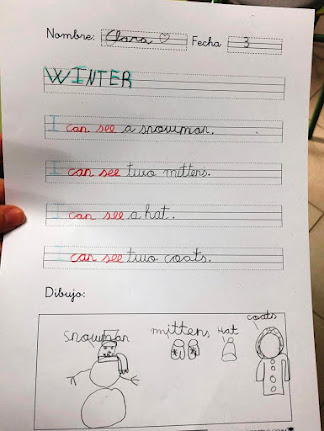 Nombre: Clara ♡ Fecha 3
WINTER
I can see a snowman.
I can see two mittens.
I can see a hat.
I can see two coats.
Dibujo:
snowman mittens Hat coats